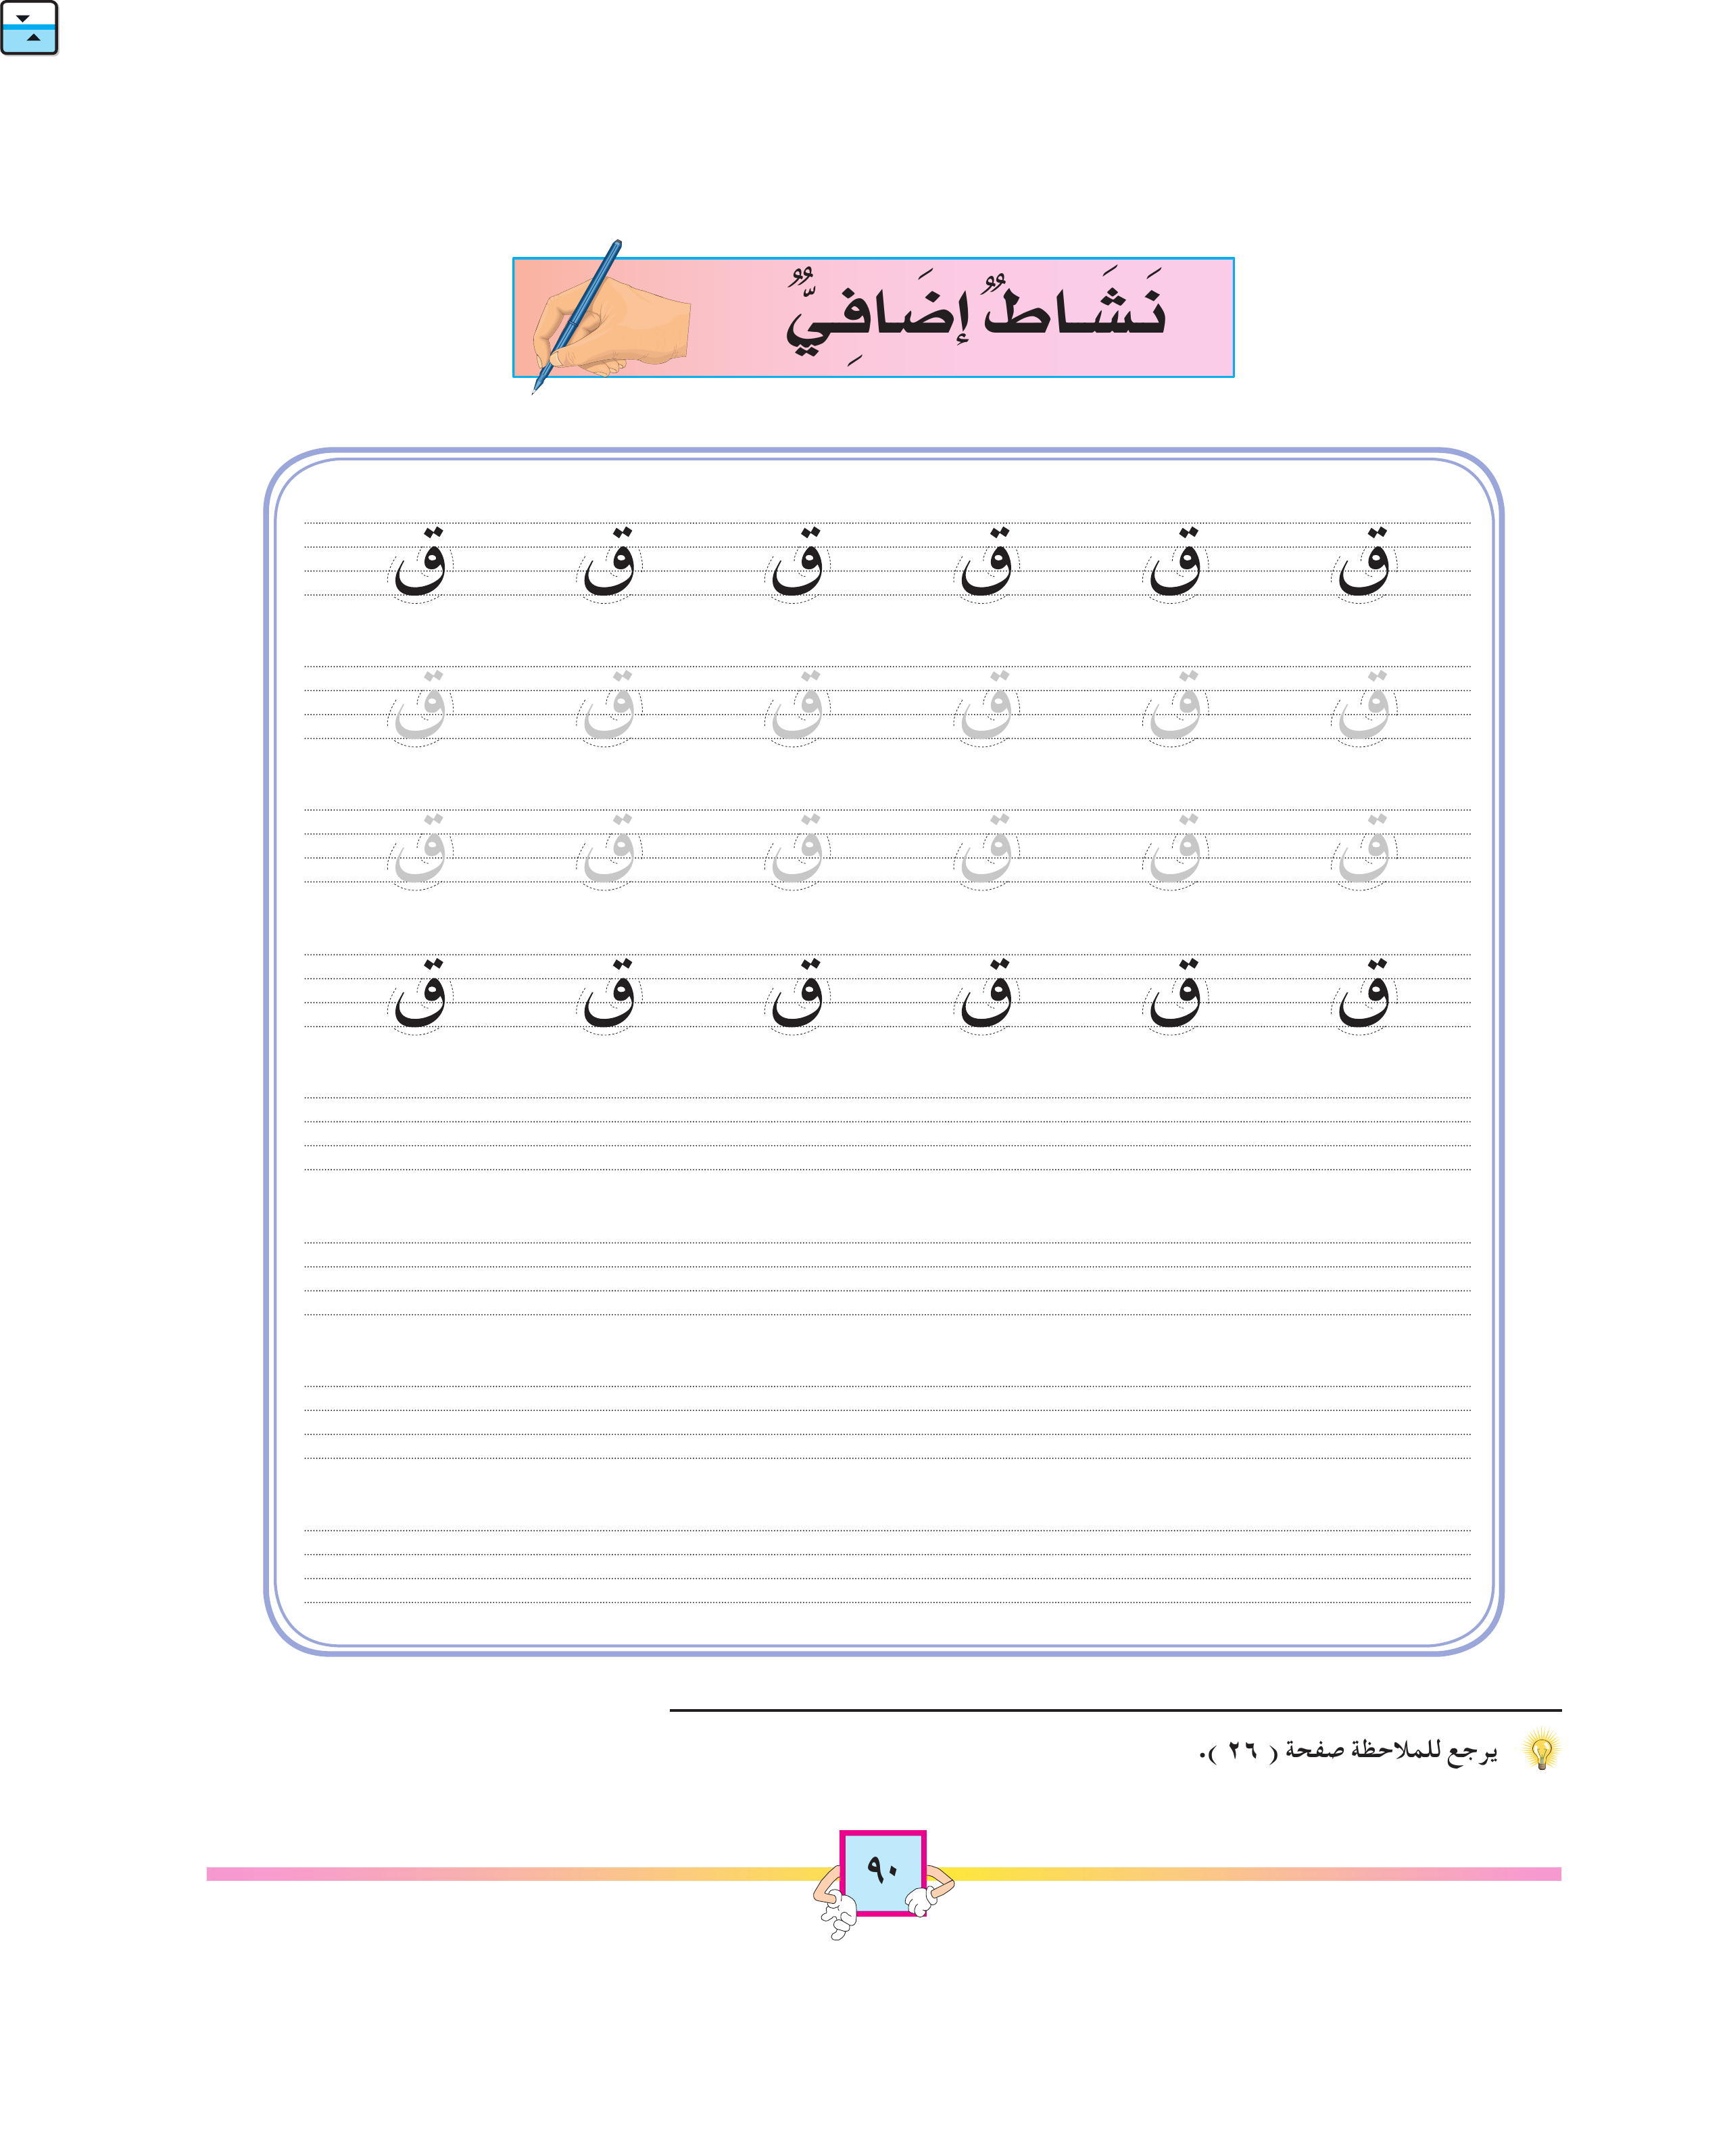 نَشَاطٌ إِضَافِيٌّ
ق ق ق ق ق ق
ق ق ق ق ق ق
ق ق ق ق ق ق
ق ق ق ق ق ق
يرجع للملاحظة صفحة ( ٢٦ ).
٩٠